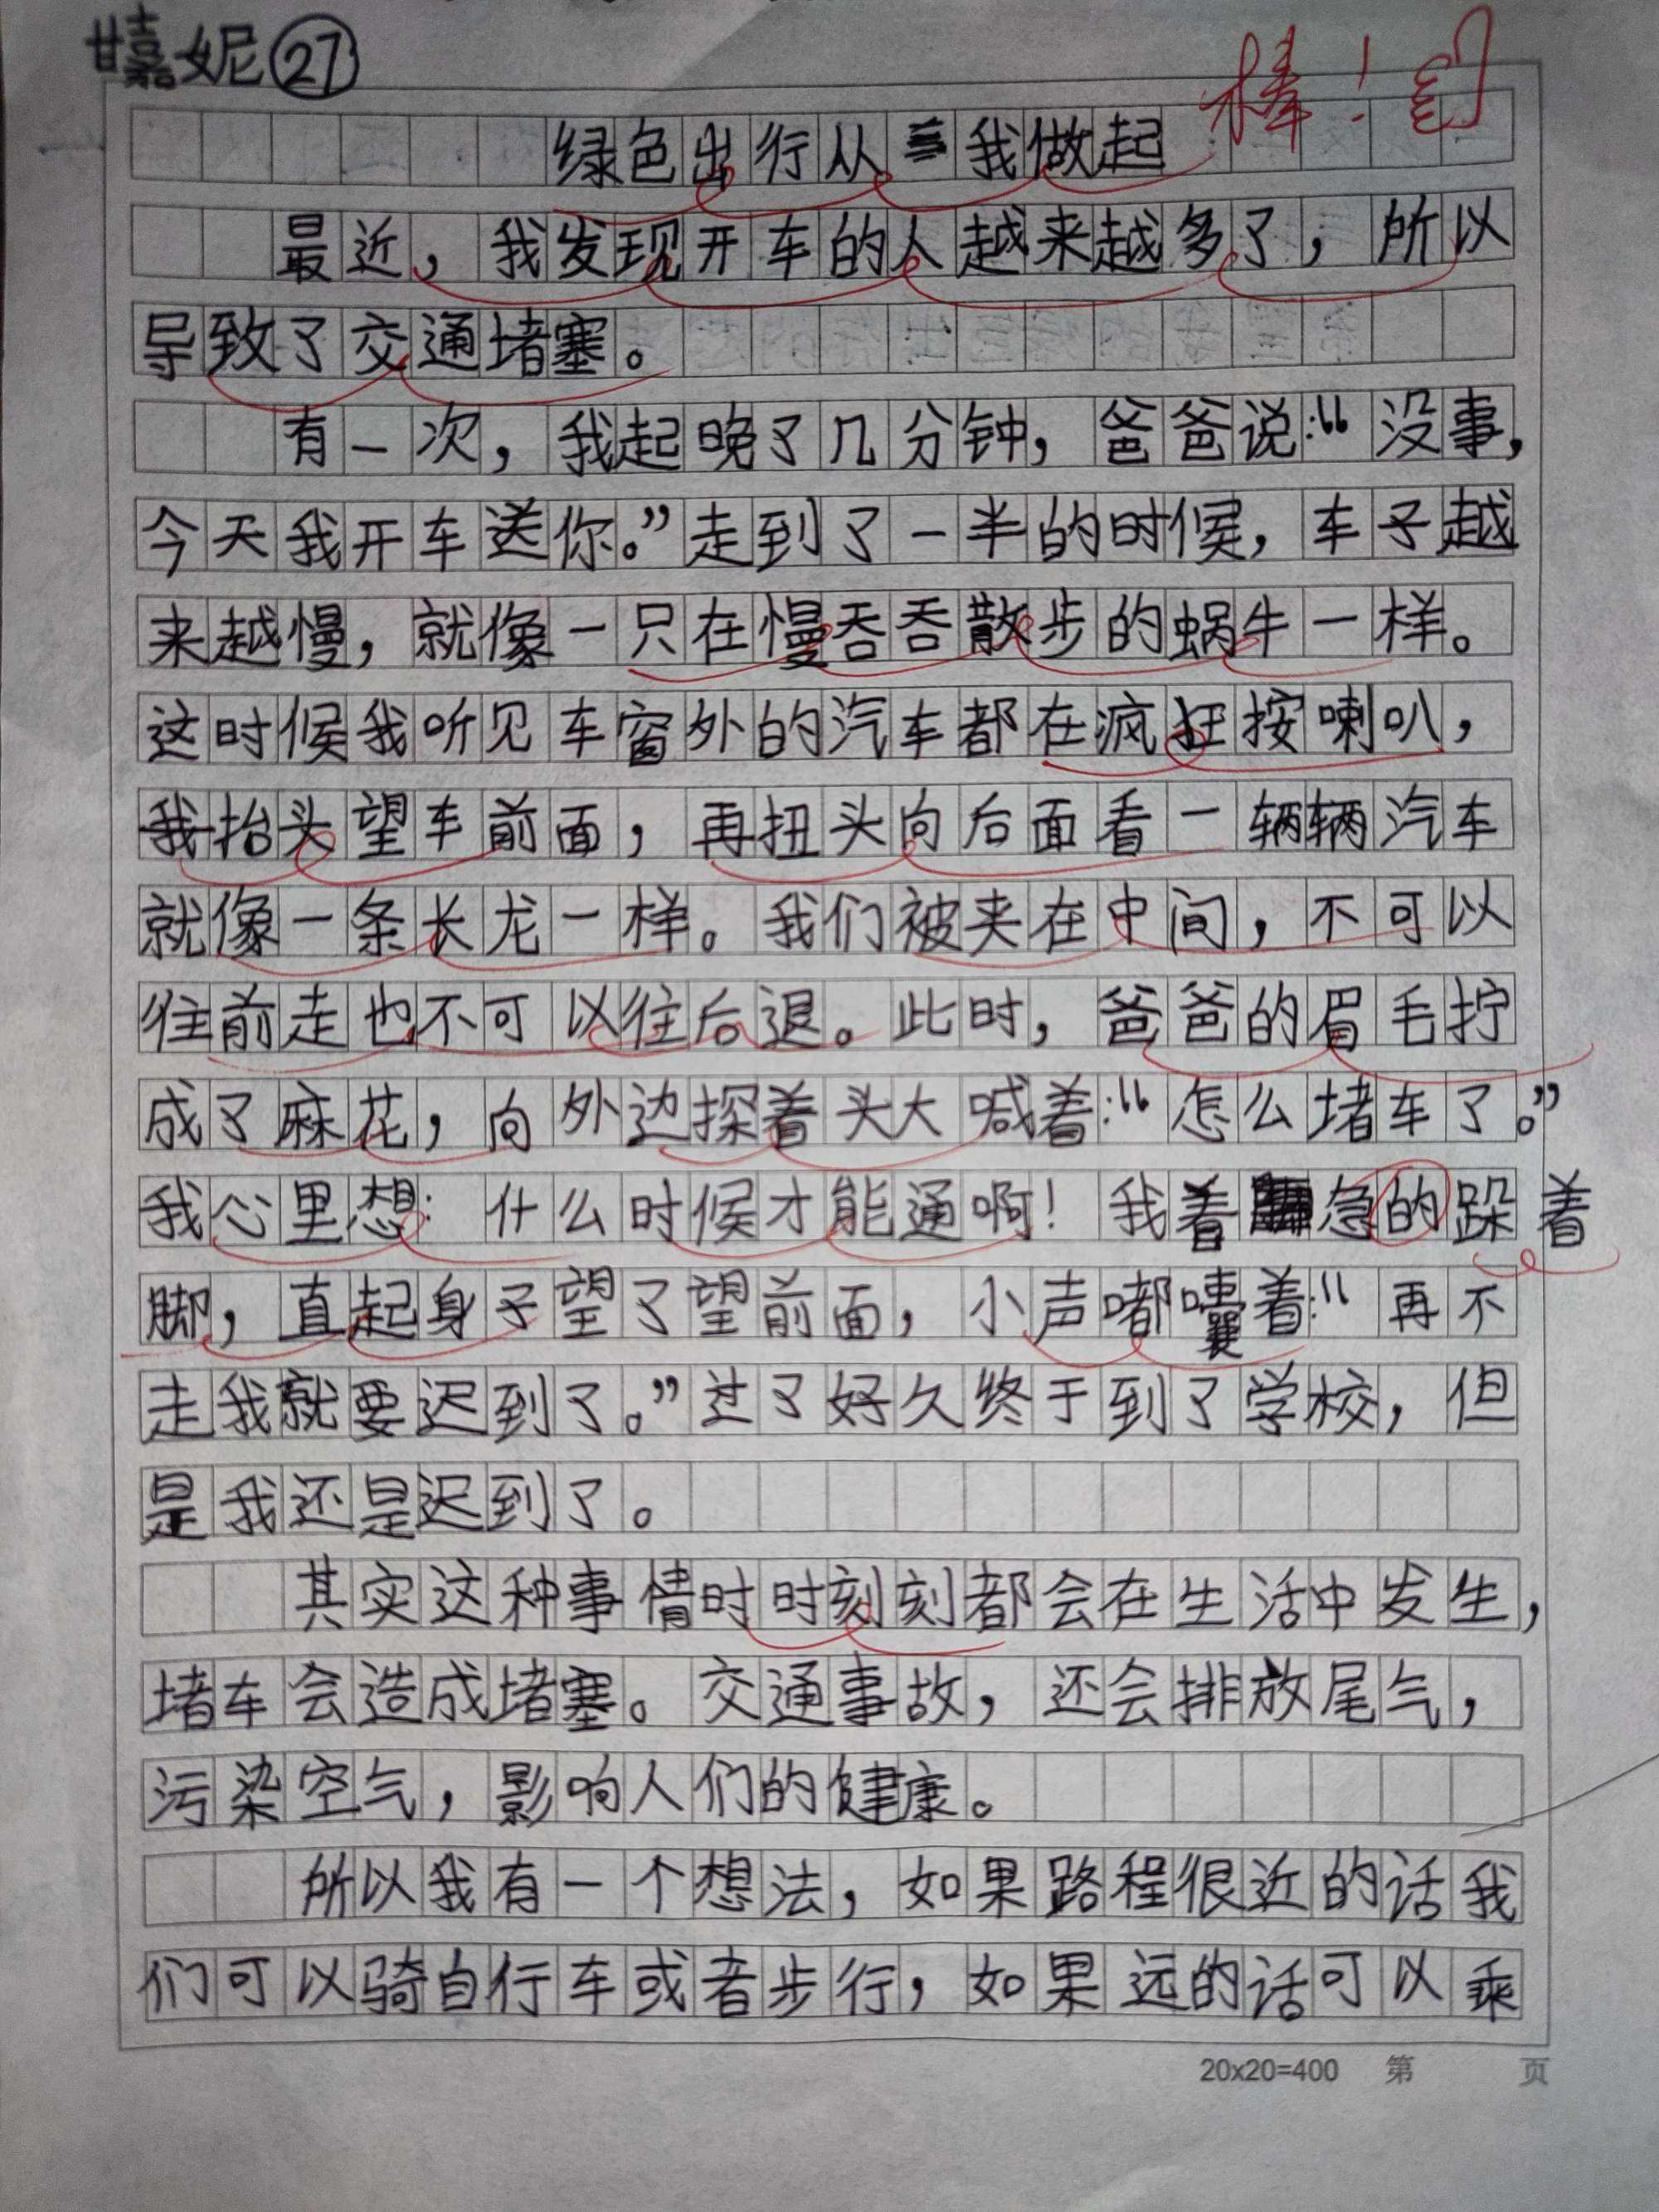 甘嘉妮 27
棒!
绿色出行从我做起
最近，我发现开车的人越来越多了，所以
导致了交通堵塞。
有一次，我起晚了几分钟，爸爸说：“没事，
今天我开车送你。”走到了一半的时候，车子越
来越慢，就像一只在慢吞吞散步的蜗牛一样。
这时候我听见车窗外的汽车都在疯狂按喇叭，
我抬头望车前面，再扭头向后面看一辆辆汽车
就像一条长龙一样。我们被夹在中间，不可以
往前走也不可以往后退。此时，爸爸的眉毛拧
成了麻花，向外边探着头大喊着：“怎么堵车了。”
我心里想：什么时候才能通啊！我着急的跺着
脚，直起身子望了望前面，小声嘟囔着：“再不
走我就要迟到了。”过了好久终于到了学校，但
是我还是迟到了。
其实这种事情时时刻刻都会在生活中发生，
堵车会造成堵塞。交通事故，还会排放尾气，
污染空气，影响人们的健康。
所以我有一个想法，如果路程很近的话我
们可以骑自行车或者步行，如果远的话可以乘
20x20=400 第 页